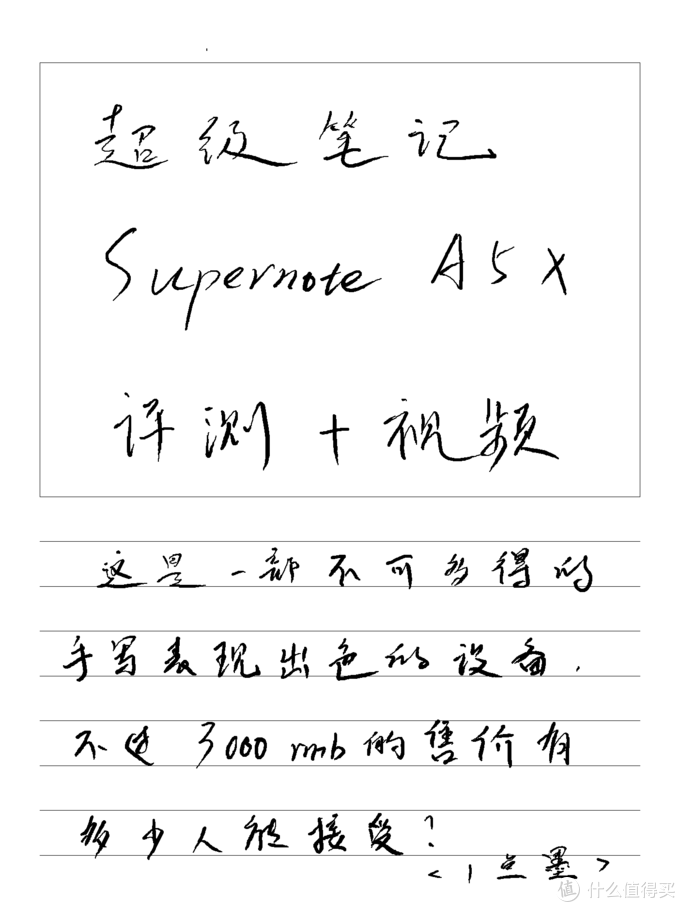 超级笔记
Supernote A5X
评测+视频
这是一部不可多得的
手写表现出色的设备.
不过3000rmb的售价有
多少人能接受?
<1点墨>
值 什么值得买